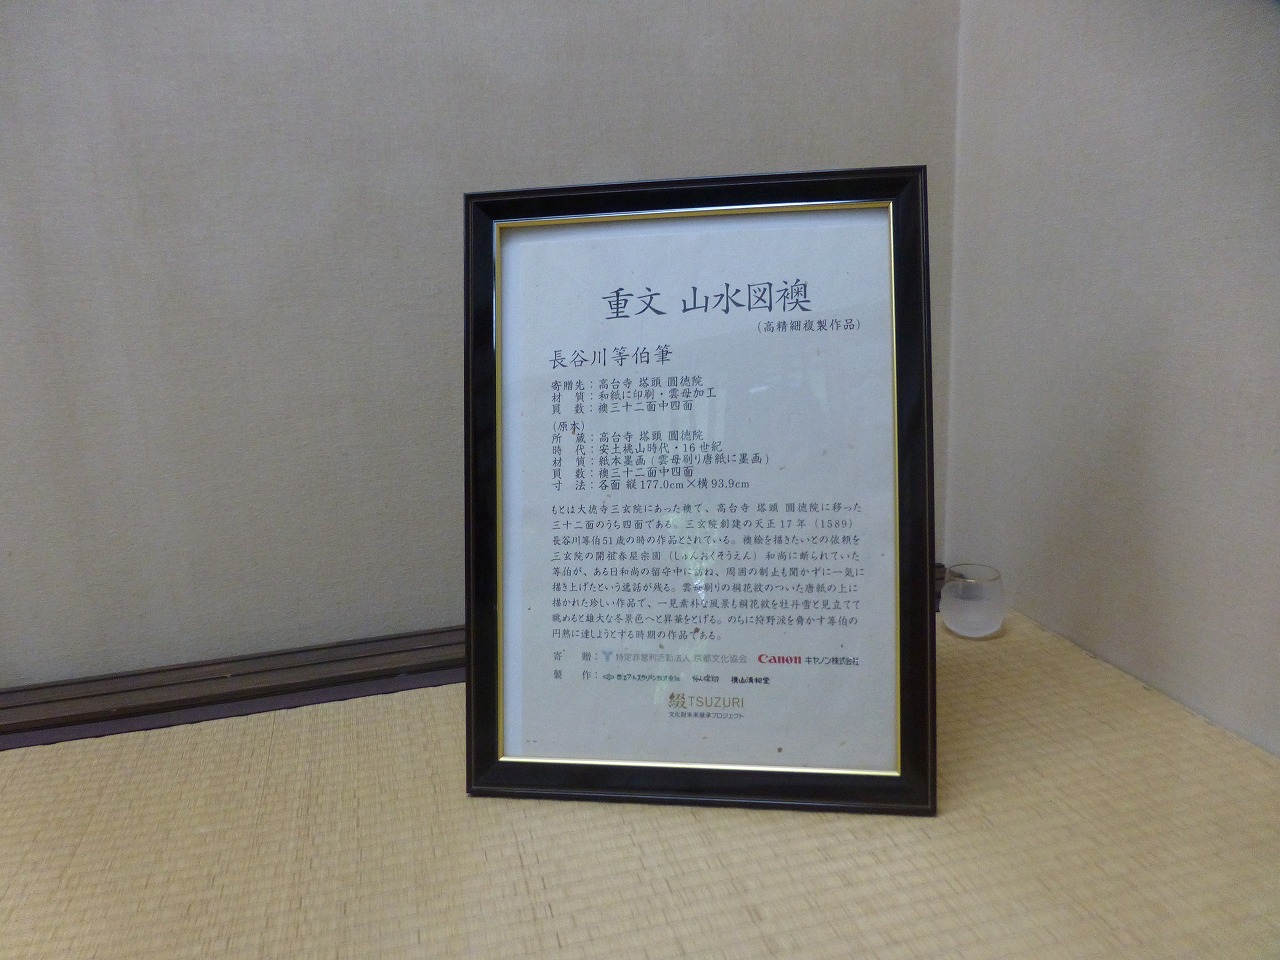 重文 山水図襖
（高精細複製作品）
長谷川等伯筆
寄贈先：高台寺 塔頭 圓徳院
材　質：和紙に印刷・雲母加工
頁　数：襖三十二面中四面
（原本）
所　蔵：高台寺 塔頭 圓徳院
時　代：安土桃山時代・16世紀
材　質：紙本墨画（雲母刷り唐紙に墨画）
頁　数：襖三十二面中四面
寸　法：各面 縦177.0cm×横93.9cm
もとは大徳寺三玄院にあった襖で、高台寺 塔頭 圓徳院に移った
三十二面のうち四面である。三玄院創建の天正17年（1589）
長谷川等伯51歳の時の作品とされている。襖絵を描きたいとの依頼を
三玄院の開祖春屋宗園（しゅんおくそうえん）和尚に断られていた
等伯が、ある日和尚の留守中に訪ね、周囲の制止も聞かずに一気に
描き上げたという逸話が残る。雲母刷りの桐花紋のついた唐紙の上に
描かれた珍しい作品で、一見素朴な風景も桐花紋を牡丹雪と見立てて
眺めると雄大な冬景色へと昇華をとげる。のちに狩野派を脅かす等伯の
円熟に達しようとする時期の作品である。
寄　贈：特定非営利活動法人 京都文化協会 Canon キヤノン株式会社
製　作： 横山清和堂
綴TSUZURI
文化財未来継承プロジェクト